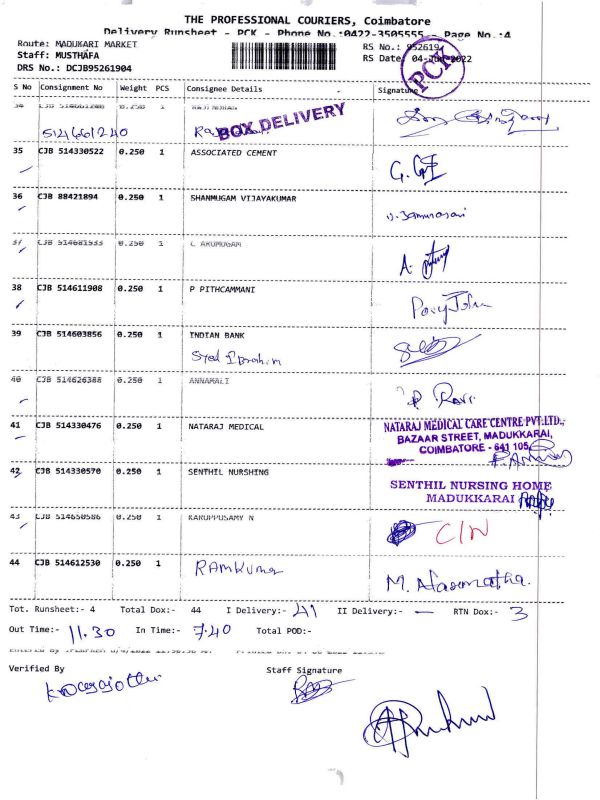 THE PROFESSIONAL COURIERS, Coimbatore
Delivery Runsheet - PCK - Phone No.:0422-3505555 - Page No.:4
Route: MADUKARI MARKET
Staff: MUSTHAFA
DRS No.: DCJB95261904
RS No.: 952619
RS Date: 04-Jun-2022
PCK
S No Consignment No Weight PCS Consignee Details Signature
34 CJB 514661240 0.250 1
514661240
BOX DELIVERY
35 CJB 514330522 0.250 1 ASSOCIATED CEMENT
36 CJB 88421894 0.250 1 SHANMUGAM VIJAYAKUMAR
37 CJB 514681533 0.250 1 C ARUMUGAM
38 CJB 514611908 0.250 1 P PITHCAMMANI
39 CJB 514603856 0.250 1 INDIAN BANK
Syed Ibrahim
40 CJB 514626388 0.250 1 ANNAMALI
Ravi
41 CJB 514330476 0.250 1 NATARAJ MEDICAL
NATARAJ MEDICAL CARE CENTRE PVT.LTD.,
BAZAAR STREET, MADUKKARAI,
COIMBATORE - 641 105.
42 CJB 514330570 0.250 1 SENTHIL NURSHING
SENTHIL NURSING HOME
MADUKKARAI
43 CJB 514650586 0.250 1 KARUPPUSAMY N
C/N
44 CJB 514612530 0.250 1 RAMKUMAR
Tot. Runsheet:- 4 Total Dox:- 44 I Delivery:- 41 II Delivery:- — RTN Dox:- 3
Out Time:- 11.30 In Time:- 7.40 Total POD:-
Verified By Staff Signature